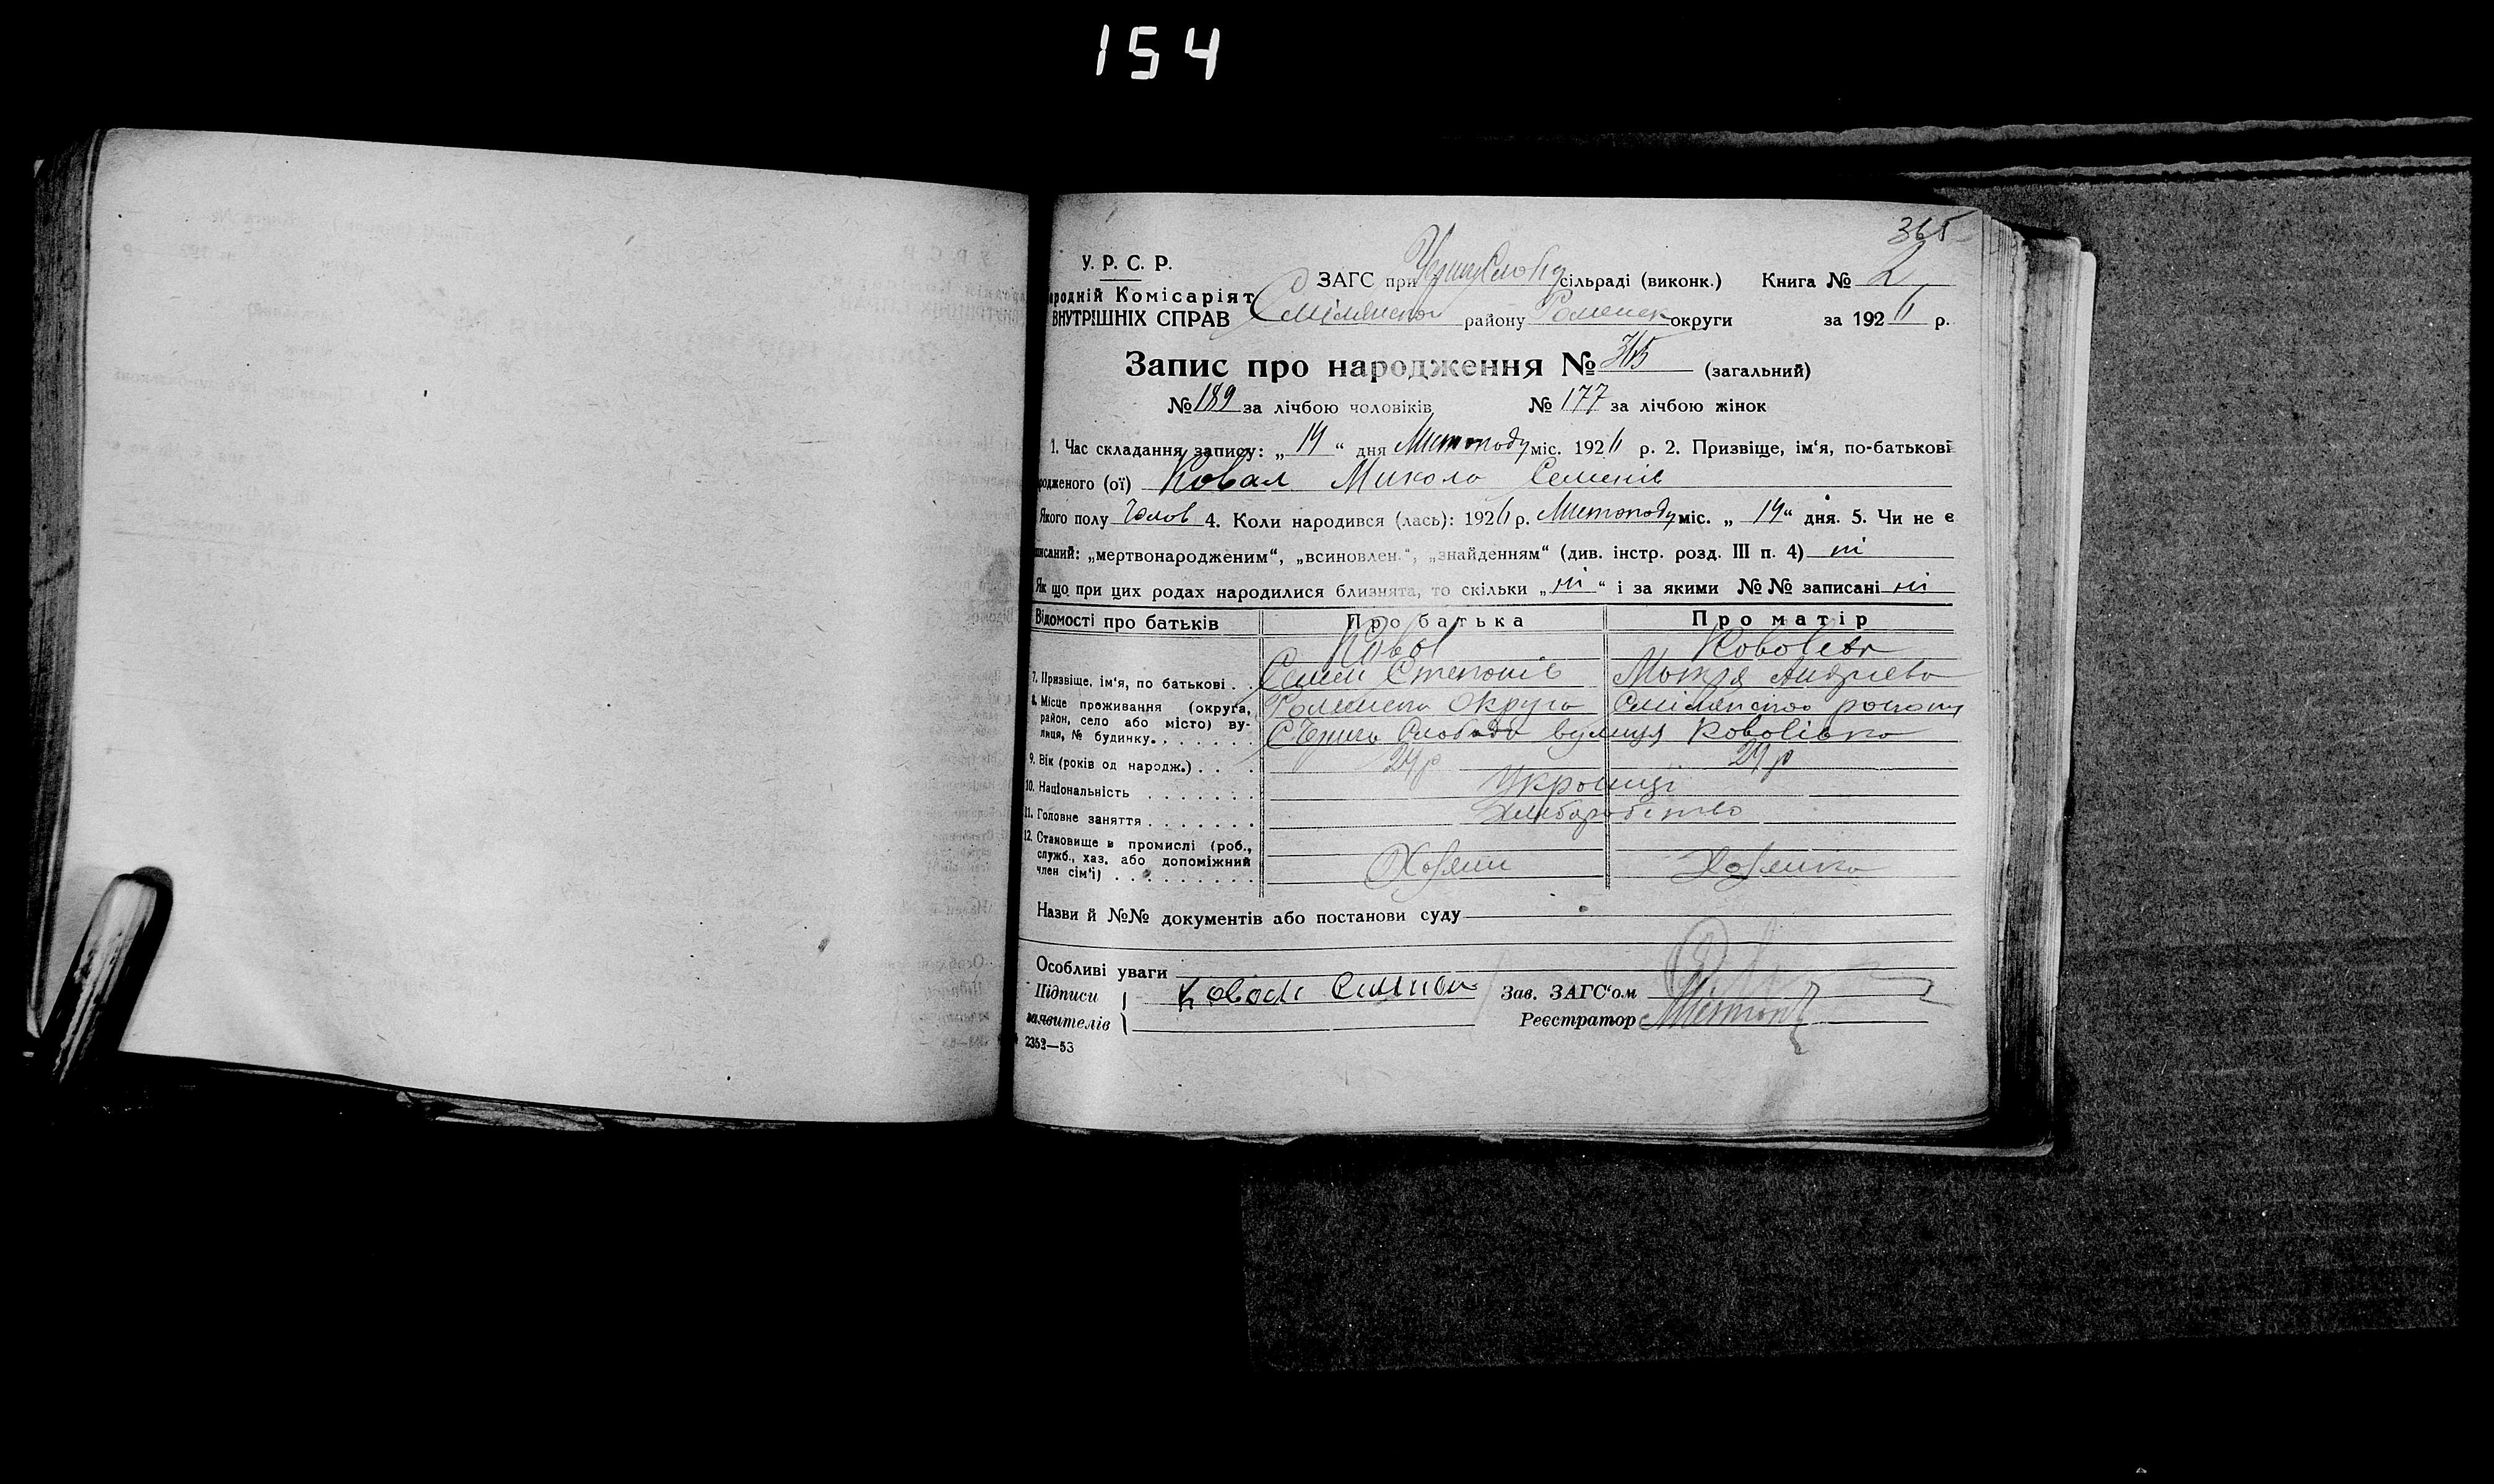 154
365
У. Р. С. Р.
ЗАГС при сільраді (виконк.) Книга № 2
ародній Комісаріят
ВНУТРІШНІХ СПРАВ Смілянськ району Роменськ округи за 1926 р.
Запис про народження № 365 (загальний)
№ 189 за лічбою чоловіків № 177 за лічбою жінок
1. Час складання запису: „ 14 “ дня Листопаду міс. 1926 р. 2. Призвіще, ім‘я, по-батькові
родженого (ої) Ковал Микола Семенів
Якого полу Чолов 4. Коли народився (лась): 1926 р. Листопаду міс. „ 14 “ дня. 5. Чи не є
писаний: „мертвонародженим“, „всиновлен.“, „знайденням“ (див. інстр. розд. III п. 4) ні
Як що при цих родах народилися близнята, то скільки „ ні “ і за якими №№ записані ні
Відомості про батьків Про батька Про матір
7. Призвіще, ім‘я, по батькові . . Семен Степанів Мотря Андриева
8. Місце проживання (округа, Роменська Округа Смілянського району
район, село або місто) ву-
лиця, № будинку. . . . . . . С Черича Слобода вулиця Ковалівка
9. Вік (років од народж.) . . . 24 р 24 р
10. Національність . . . . . . . Українці
11. Головне заняття . . . . . . . Хліборобство
12. Становище в промислі (роб.,
служб., хаз. або допоміжний
член сім‘ї) . . . . . . . . . Хазяин Хазяйка
Назви й №№ документів або постанови суду
Особливі уваги
Підписи Коваль Зав. ЗАГС‘ом
заявителів Реєстратор
2352—53